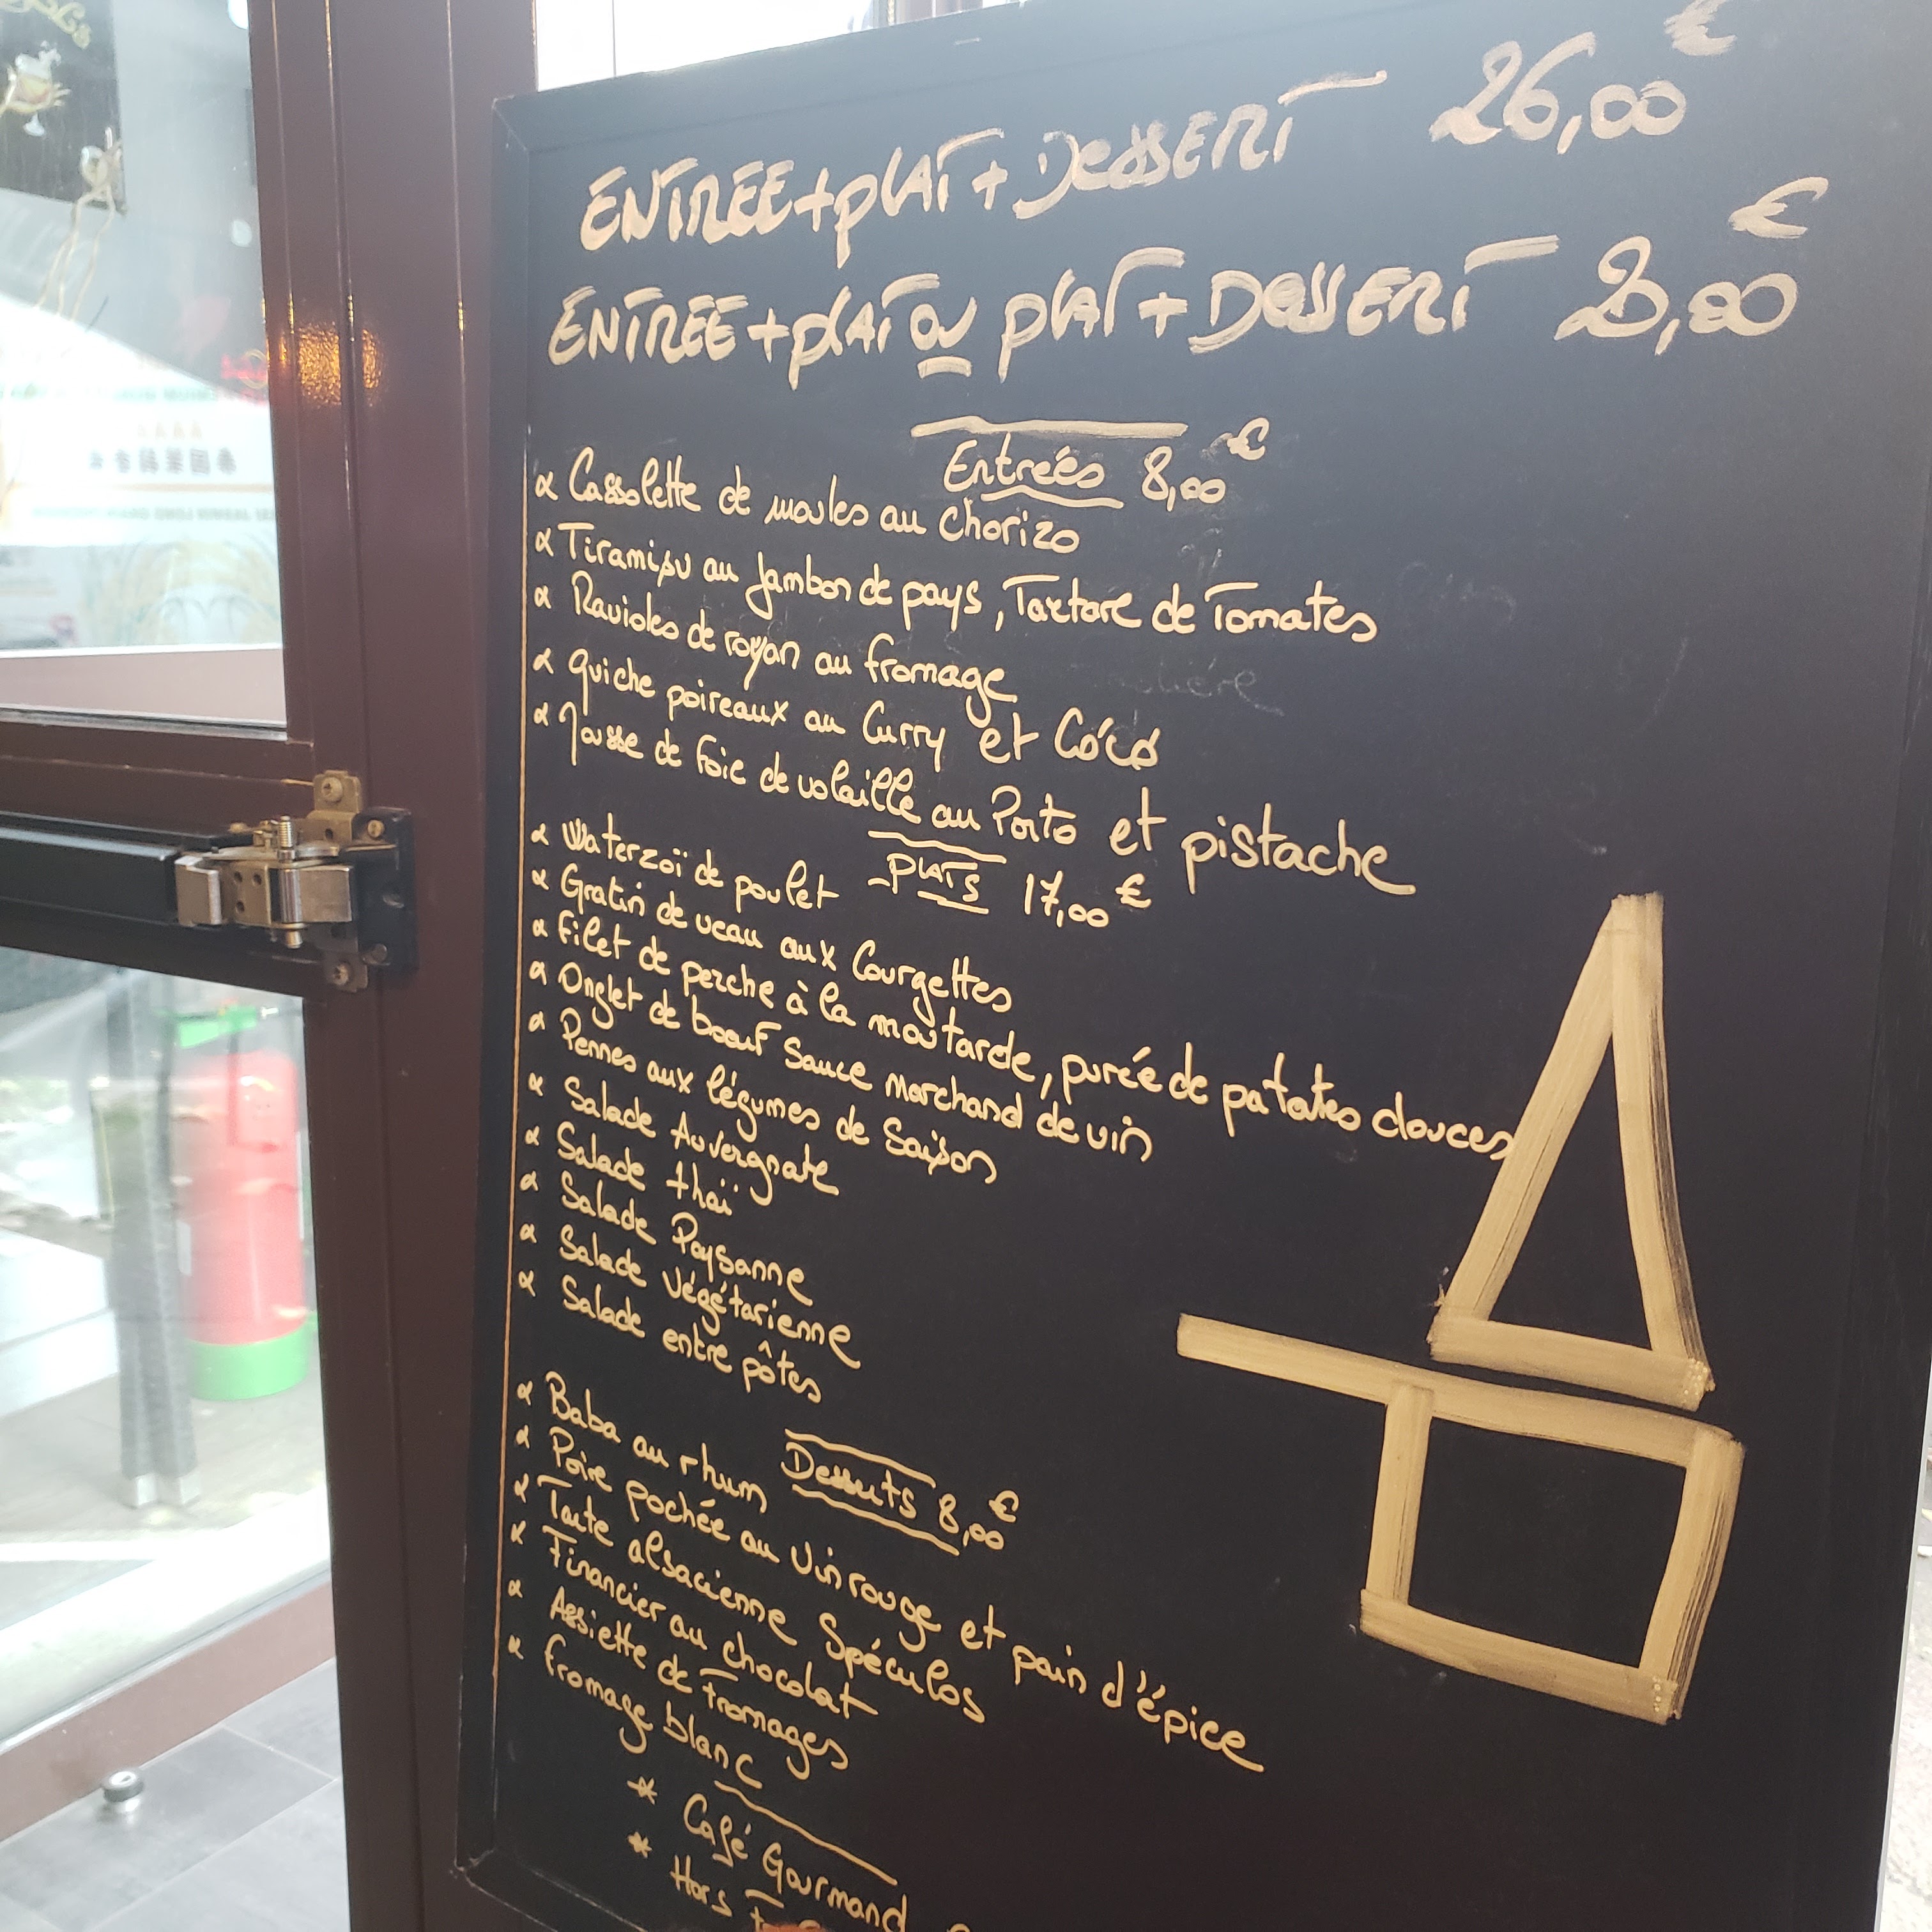 ENTREE + plAT + DESSERT 26,00 €
ENTREE + plAT ou plAT + DESSERT €
Entrées 8,00 €
Cassolette de moules au Chorizo
Tiramisu au Jambon de pays, Tartare de Tomates
Ravioles de royan au fromage
quiche poireaux au Curry et Coco
Mousse de foie de volaille au Porto et pistache
PLATS 17,00 €
Waterzoï de poulet
Gratin de veau aux Courgettes
filet de perche à la moutarde, purée de patates douces
Onglet de boeuf Sauce Marchand de vin
Pennes aux légumes de Saison
Salade Auvergnate
Salade thaï
Salade Paysanne
Salade végétarienne
Salade entre pôtes
Desserts 8,00 €
Baba au rhum
Poire pochée au vin rouge et pain d'épice
Tarte alsacienne Spéculos
Financier au chocolat
Assiette de Fromages
fromage blanc
* Café Gourmand
* Hors